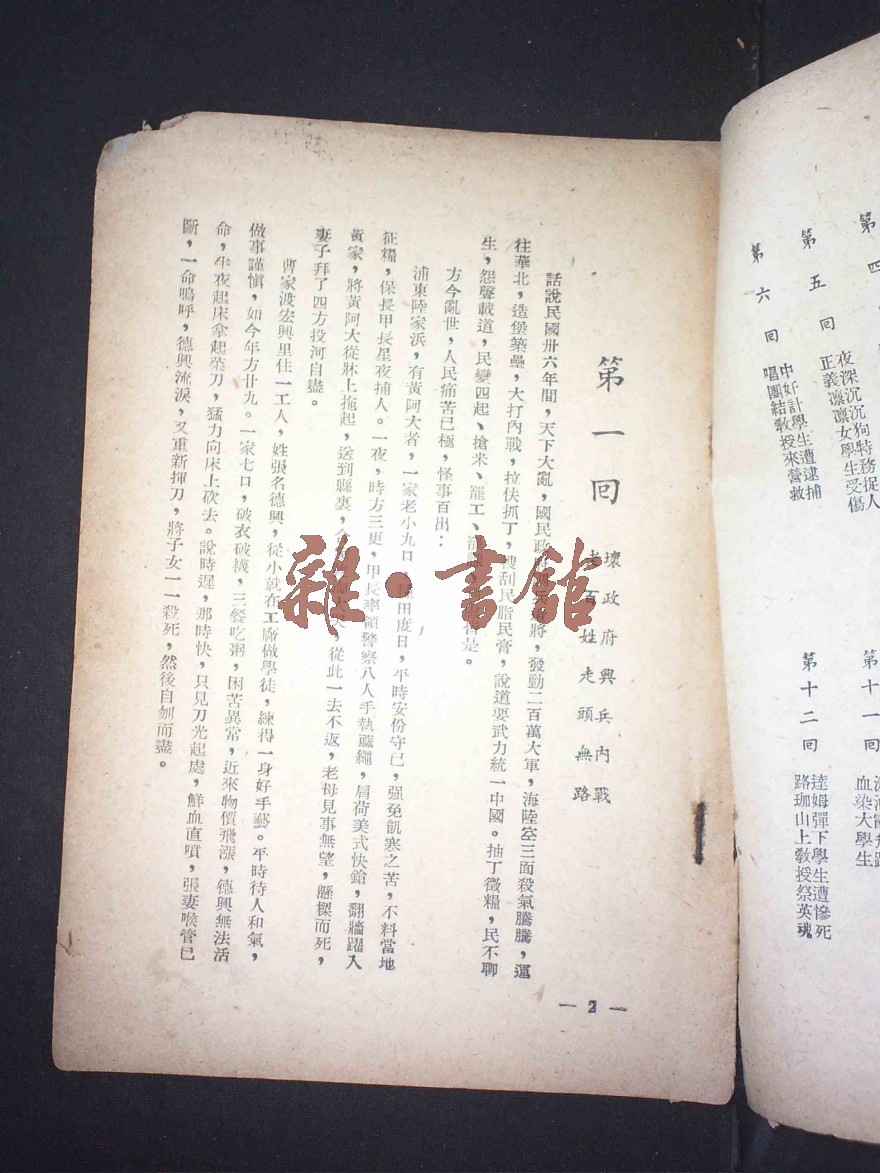 第四回
第五回 夜深沉沉狗特務捉人
正義凛凛女學生受傷
第六回 中奸計學生遭逮捕
唱團結教授來營救
第十一回
血染大學生
第十二回 達姆彈下學生遭慘死
路珈山上教授祭英魂
第一回
壞政府興兵內戰
老百姓走頭無路
話說民國卅六年間，天下大亂，國民政府調兵遣將，發動二百萬大軍，海陸空三面殺氣騰騰，運
往華北，造堡築壘，大打內戰，拉伕抓丁，搜刮民脂民膏，說道要武力統一中國。抽丁徵糧，民不聊
生，怨聲載道，民變四起、搶米、罷工、是。
方今亂世，人民痛苦已極，怪事百出：
浦東陸家浜，有黃阿大者，一家老小九口，種田度日，平時安份守已，强免飢寒之苦，不料當地
征糧，保長甲長星夜捕人。一夜，時方三更，甲長率領警察八人手執蔴繩，肩荷美式快鎗，翻牆躍入
黃家，將黃阿大從牀上拖起，送到縣裏，從此一去不返，老母見事無望，懸樑而死，
妻子拜了四方投河自盡。
曹家渡宏興里住一工人，姓張名德興，從小就在工廠做學徒，練得一身好手藝。平時待人和氣，
做事謹愼，如今年方廿九。一家七口，破衣破襪，三餐吃粥，困苦異常，近來物價飛漲，德興無法活
命，半夜起床拿起菜刀，猛力向床上砍去。說時遲，那時快，只見刀光起處，鮮血直噴，張妻喉管已
斷，一命嗚呼，德興流淚，又重新揮刀，將子女一一殺死，然後自刎而盡。
— 2 —
雜·書館